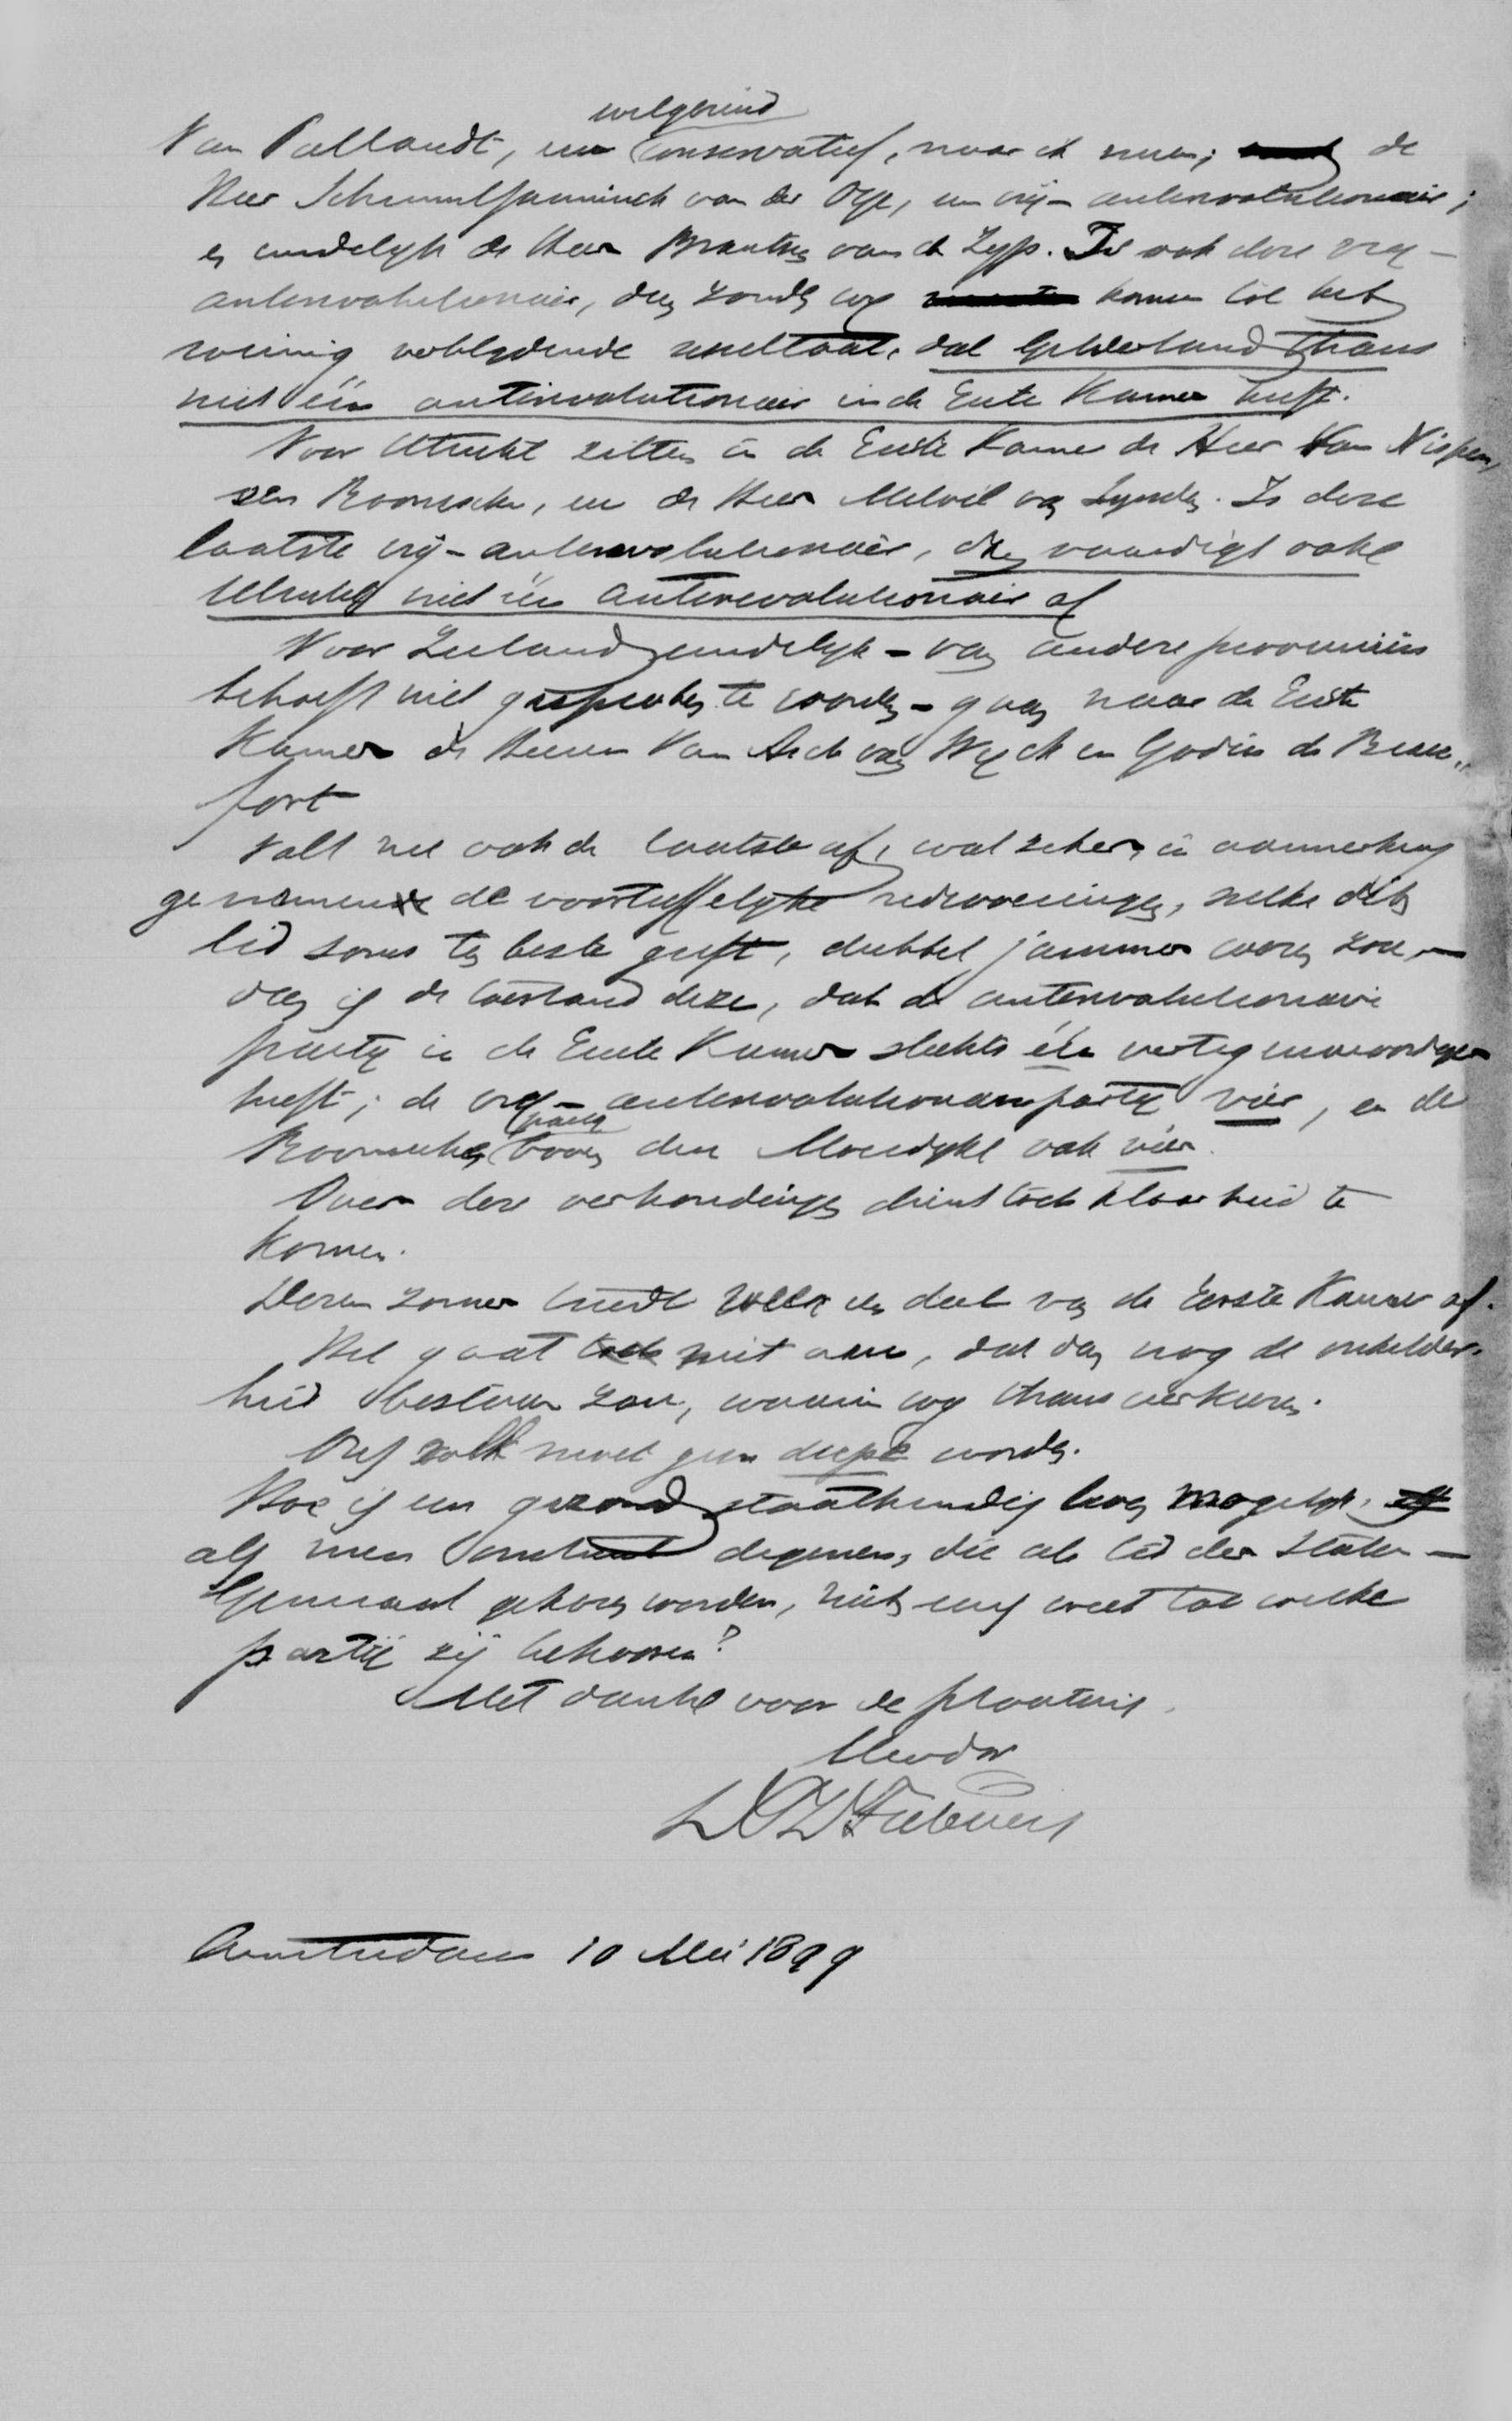 welgezind
Van Pallandt, een conservatief, naar ik meen; de
Heer Schimmelpenninck van der Oye, een vrij-antirevolutionair;
en eindelijk de Heer Brantsen van de Zyp. Is ook deze vrij-
antirevolutionair, dan zouden wij komen tot het
weinig verblijdende resultaat, dat Gelderland thans
niet één antirevolutionair in de Eerste Kamer heeft.
Voor Utrecht zitten in de Eerste Kamer de Heer Van Nispen,
een Roomsche, en de Heer Melvil van Lynden. Is deze
laatste vrij-antirevolutionair, dan vaardigt ook
Utrecht niet één antirevolutionair af
Voor Zeeland eindelijk - van andere provinciën
behoeft niet gesproken te worden - gaan naar de Eerste
Kamer de Heeren Van Asch van Wyck en Godin de Beau-
fort
Valt nu ook de laatste af, wat zeker, in aanmerking
genomen de voortreffelijke redevoeringen, welke dit
lid soms ten beste geeft, dubbel jammer wezen zou, -
dan is de toestand deze, dat de antirevolutionaire
partij in de Eerste Kamer slechts één vertegenwoordiger
heeft; de vrij-antirevolutionaire partij vier, en de
partij
Roomsche boven den Moerdijk ook vier.
Over deze verhoudingen dient toch klaarheid te
komen.
Dezen zomer treedt een deel van de Eerste Kamer af.
Het gaat toch niet aan, dat dan nog de onhelder-
heid bestaan zou, waarin wij thans verkeeren.
moet geen worden.
Hoe is een gezond staatkundig leven mogelijk,
als men omtrent degenen, die als lid der Staten-
Generaal gekozen worden, niet eens weet tot welke
partij zij behooren?
Met dank voor de plaatsing.
Amsterdam 10 Mei 1899